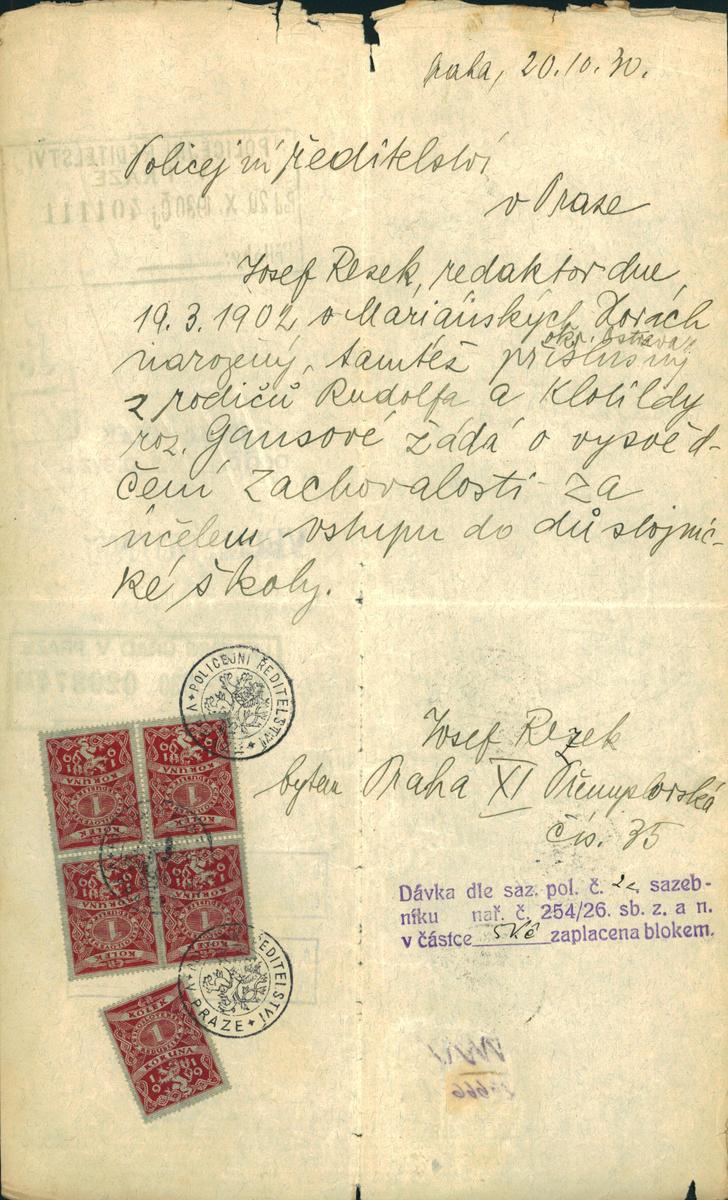 Praha, 20.10.30.
Policejní ředitelství
v Praze
Josef Rezek, redaktor dne
19.3.1902 v Mariánských Horách
okr. Ostrava
narozený, tamtéž příslušný
z rodičů Rudolfa a Klotildy
roz. Gansové žádá o vysvěd-
čení zachovalosti za
účelem vstupu do důstojnic-
ké školy.
POLICEJNÍ ŘEDITELSTVÍ
Josef Rezek
bytem Praha XI Přemyslovská
čís. 35
KORUNA
1
KOLEK
KORUNA
1
KOLEK
KOLEK
1
KORUNA
KOLEK
1
KORUNA
Dávka dle saz. pol. č. 2 sazeb-
níku nař. č. 254/26. sb. z. a n.
v částce 5Kč zaplacena blokem.
ŘEDITELSTVÍ
V PRAZE
KOLEK
1
KORUNA
1919